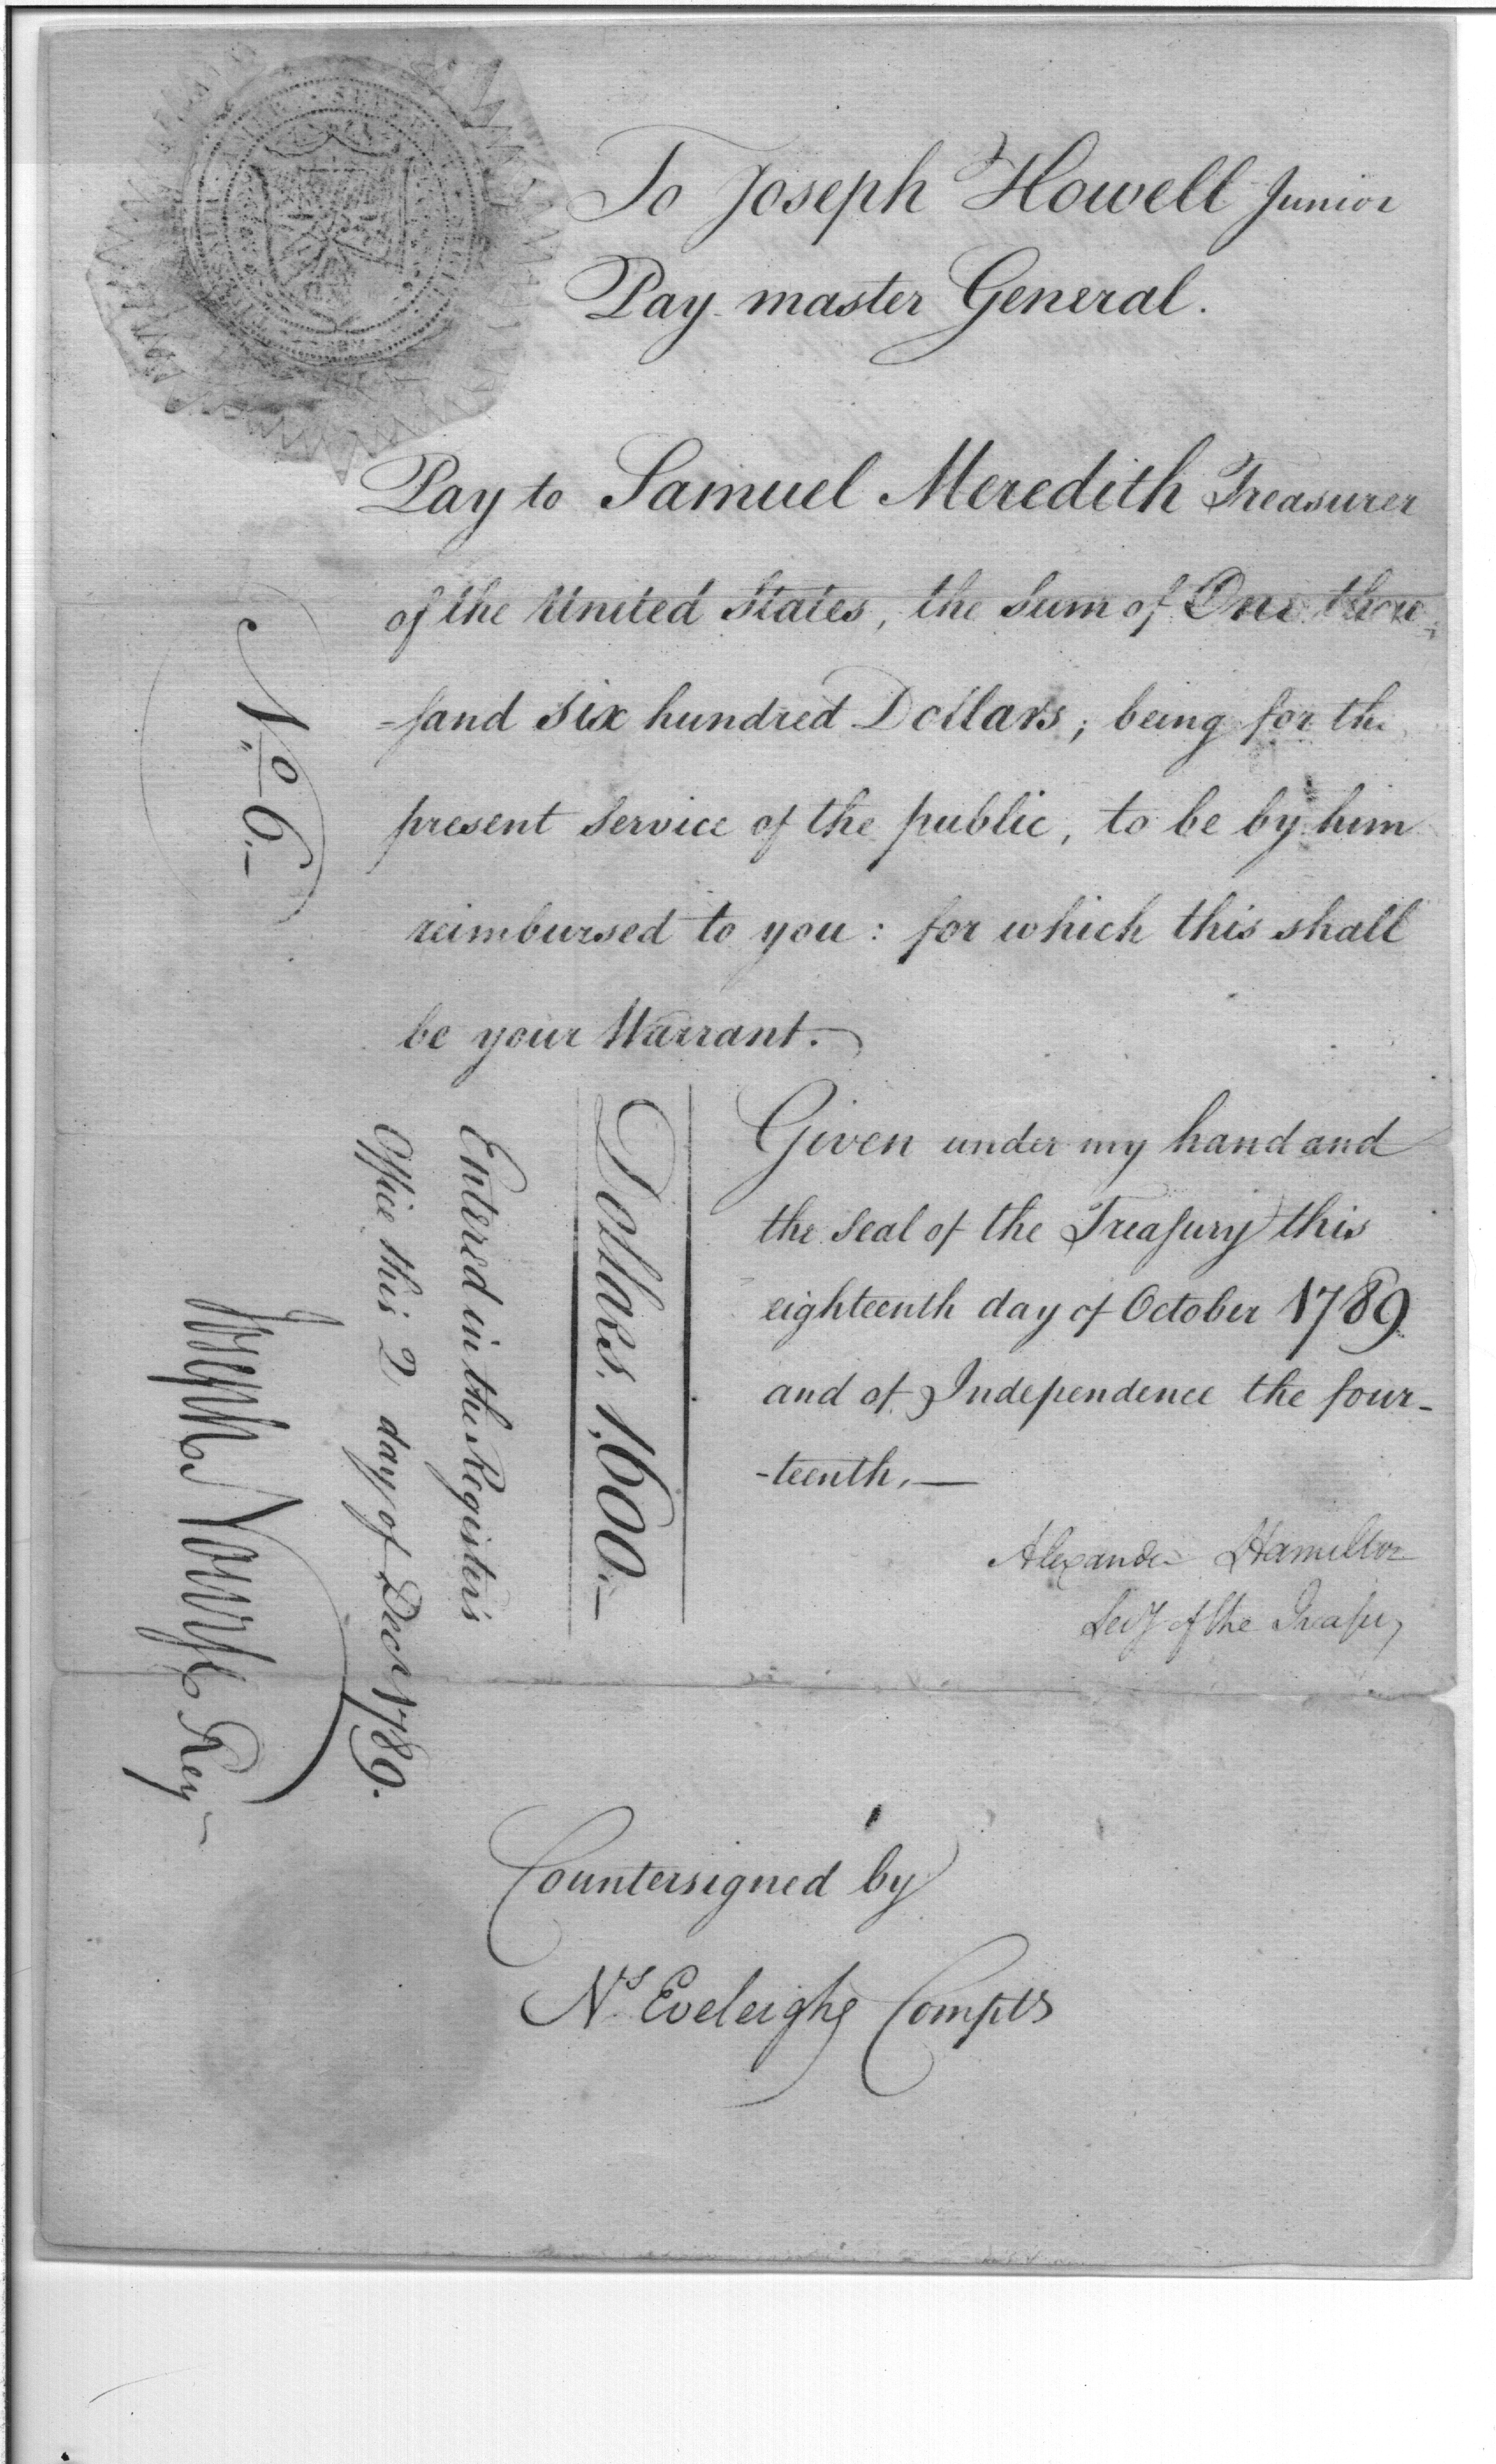 To Joseph Howell Junior
Pay master General.
Pay to Samuel Meredith Treasurer
of the United States, the Sum of One thou-
-sand six hundred Dollars; being for the
present Service of the public, to be by him
reimbursed to you: for which this shall
be your Warrant.
Given under my hand and
the Seal of the Treasury this
eighteenth day of October 1789
and of Independence the four-
-teenth. —
Alexander Hamilton
Secy of the Treasury
Dollars, 1,600.—
Entered in the Register's
Office this 2 day of Decr 1789.
Joseph Nourse Reg
No. 6.—
Countersigned by
Ns Eveleigh Compts